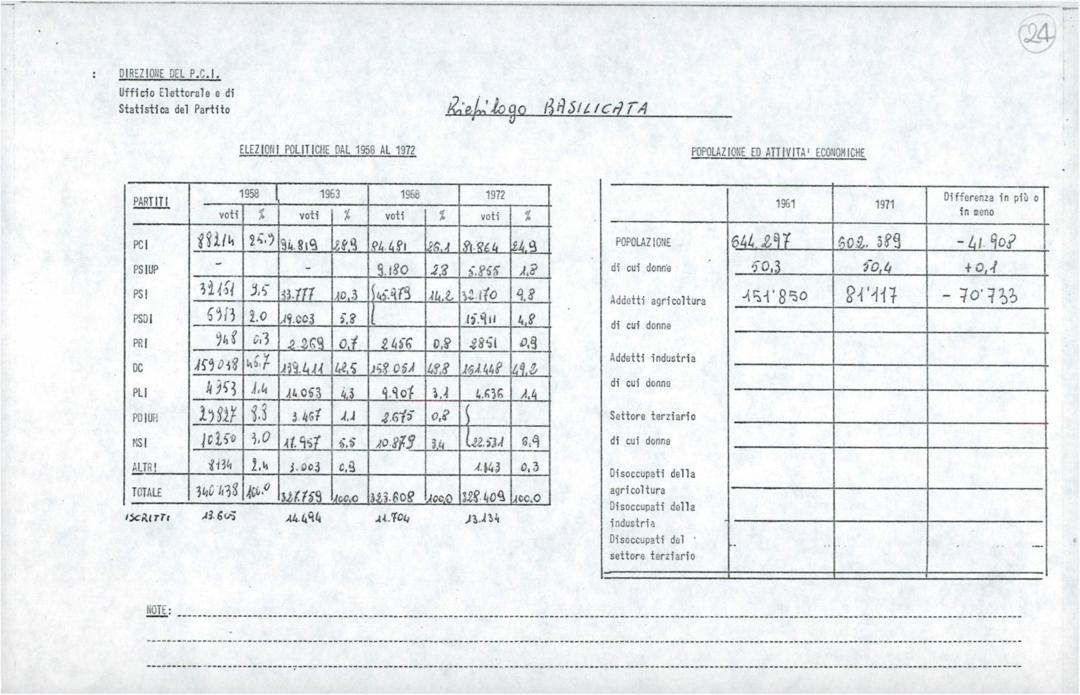 24
DIREZIONE DEL P.C.I.
Ufficio Elettorale e di
Statistica del Partito
Riepilogo BASILICATA
ELEZIONI POLITICHE DAL 1958 AL 1972
PARTITI 1958 1963 1968 1972
voti % voti % voti % voti %
PCI 88214 25.9 94.819 28,9 84.481 26,1 81.864 24,9
PSIUP - - 9.180 2,8 5.855 1,8
PSI 32151 9.5 33.777 10,3 45.979 14,2 32.170 9,8
PSDI 6913 2.0 19.003 5,8 15.911 4,8
PRI 948 0.3 2.269 0,7 2456 0,8 2851 0,9
DC 159048 46.7 139.411 42,5 158.051 48,8 161.448 49,2
PLI 4953 1.4 14.053 4,3 9.907 3,1 4.636 1,4
PDIUM 29827 8.8 3.467 1.1 2.675 0,8
MSI 10250 3.0 17.957 5,5 10.879 3,4 22.531 6,9
ALTRI 8134 2.4 3.003 0,9 1.143 0,3
TOTALE 340438 100.0 327.759 100,0 323.608 100,0 328.409 100.0
ISCRITTI 13.605 14.494 11.704 13.134
POPOLAZIONE ED ATTIVITA' ECONOMICHE
1961 1971 Differenza in più o
in meno
POPOLAZIONE 644.297 602.389 -41.908
di cui donne 50,3 50,4 +0,1
Addetti agricoltura 151'850 81'117 - 70'733
di cui donne
Addetti industria
di cui donne
Settore terziario
di cui donne
Disoccupati della
agricoltura
Disoccupati della
industria
Disoccupati del
settore terziario
NOTE: